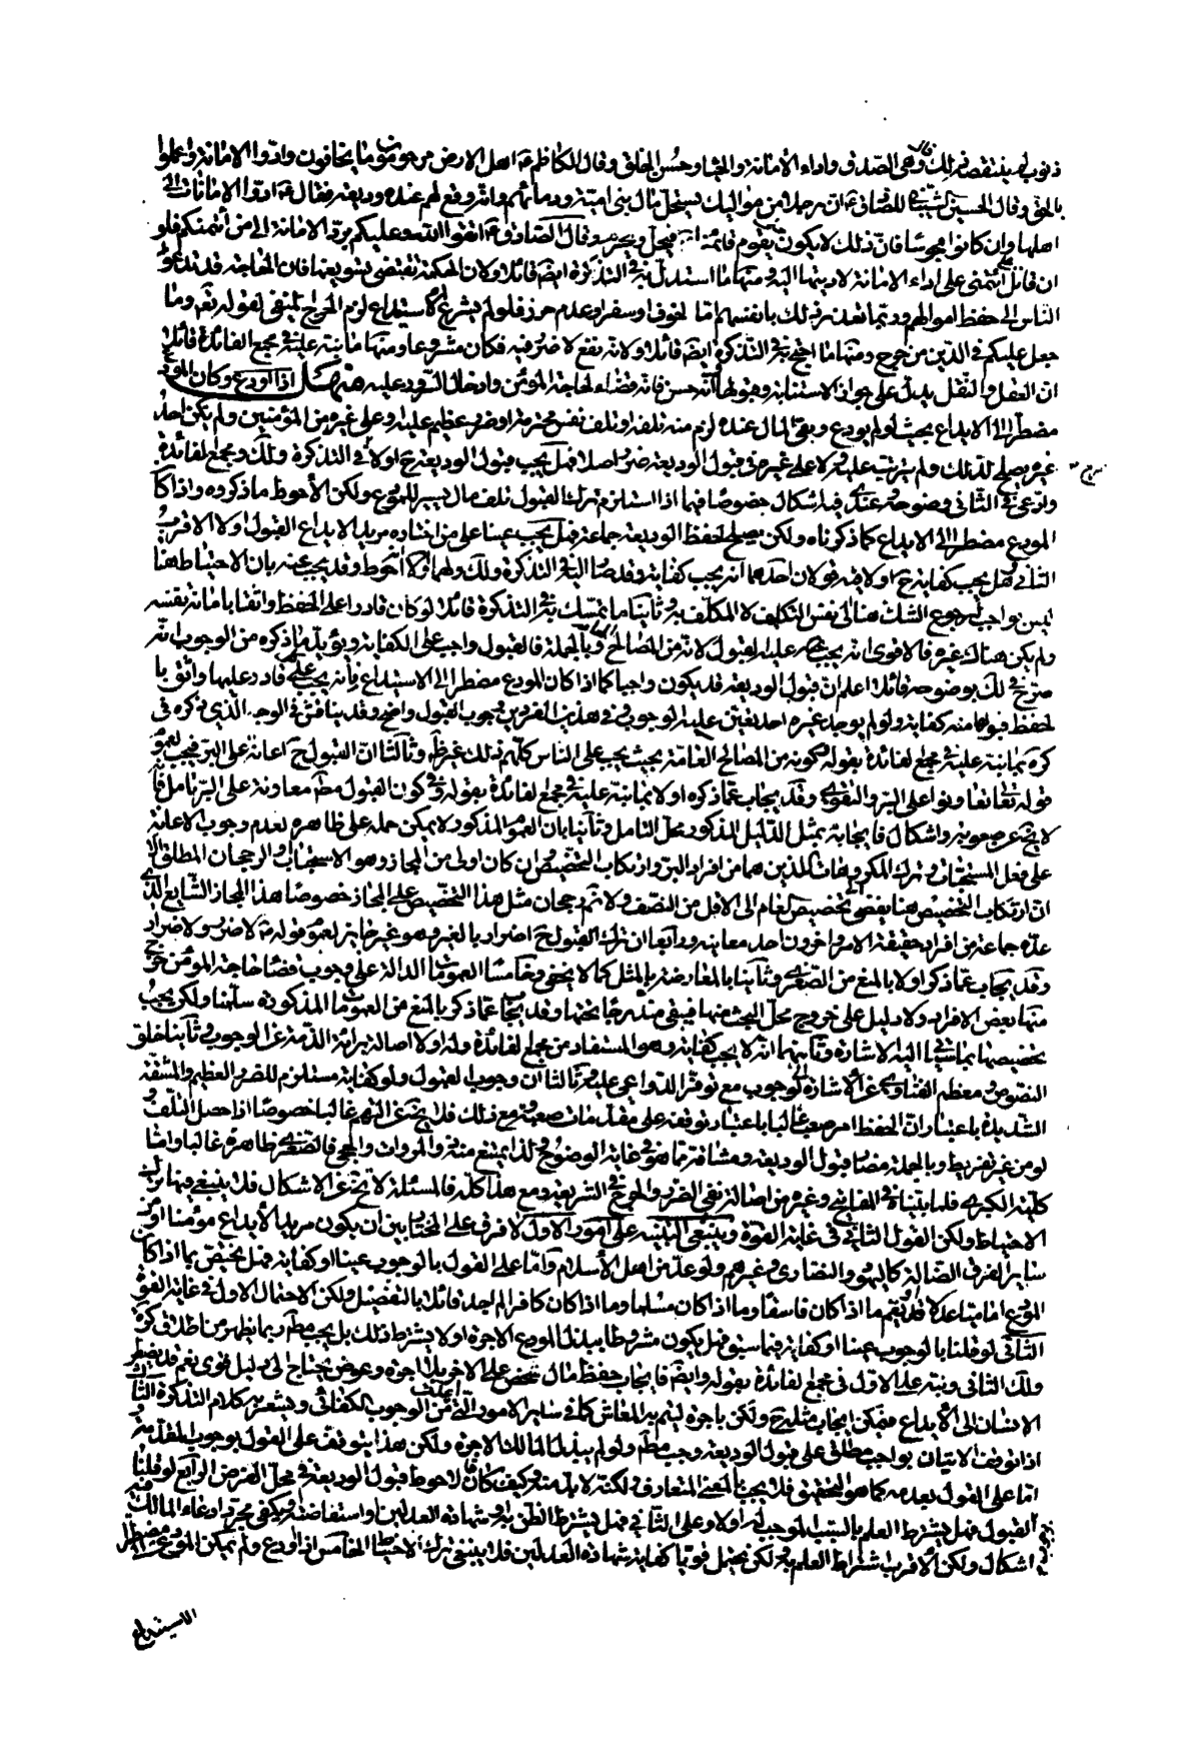 ذنوب لم ينقصه ذلك قال وهي الصدق واداء الأمانة والحياء وحسن الخلق وقال الكاظم ع اهل الارض مرحومون ما يخافون وادّوا الامانة وعملوا
بالحق وقال الحسين الشيباني للصادق ع ان رجلا من مواليك يستحل مال بني امية ودمائهم وانه وقع لهم عنده وديعة فقال ع ادوا الامانات الى
اهلها وان كانوا مجوسا فان ذلك لا يكون حتى يقوم قائمنا فيحل ويحرم وقال الصادق ع اتقوا الله وعليكم بردّ الامانة الى من ائتمنكم فلو
ان قاتل علي ائتمنني على اداء الامانة لاديتها اليه ومنها ما استدل به في التذكرة ايضا قائلا ولان الحكمة تقتضي تسويغها فان الحاجة قد تدعو
الناس الى حفظ اموالهم وربما تعذر ذلك بانفسهم اما لخوف او سفر او عدم حرز فلو لم يشرع الاستيداع لزم الحرج المنفي لقوله تعالى وما
جعل عليكم في الدين من حرج ومنها ما احتج به في التذكرة ايضا قائلا ولانه نفع لا ضرر فيه فكان مشروعا ومنها ما نبه عليه في مجمع الفائدة قائلا
ان العقل والنقل يدل على جواز الاستنابة وقبولها لأنه حسن فانه قضاء لحاجة المؤمن وادخال السرور عليه منهل اذا اودع وكان المودع
مضطرا الى الايداع بحيث لو لم يودع وبقي المال عنده لزم منه تلفه او تلف نفس محترمة او ضرر عظيم عليه وعلى غيره من المؤمنين ولم يكن احد
غيره يصلح لذلك ولم يترتب عليه ولا على غيره في قبول الوديعة ضرر اصلا فهل يجب قبول الوديعة ح او لا في التذكرة ولك ومجمع الفائدة
وادعى في الثاني وضوحه عندي فيه اشكال خصوصا فيما اذا استلزم ترك القبول تلف مال يسير للمودع ولكن الأحوط ما ذكروه واذا كان
المودع مضطرا الى الايداع كما ذكرناه ولكن يصلح لحفظ الوديعة جماعة فهل يجب عينا على من اختاره مريد الايداع القبول او لا الاقرب
الثاني وهل يجب كفاية ح او لا فيه قولان احدهما انه يجب كفاية وقد صار اليه في التذكرة ولك ولهم اولا انه احوط وقد يجاب عنه بان الاحتياط هنا
ليس بواجب لرجوع الشك هنا الى نفس التكليف لا المكلف به وثانيا ما تمسك به في التذكرة قائلا لو كان قادرا على الحفظ واثقا بامانة نفسه
ولم يكن هناك غيره فالاقوى انه يجب عليه القبول لانه من المصالح وبالجملة فالقبول واجب على الكفاية ويؤيد ما ذكره من الوجوب انه
صرح في لك بوضوحه قائلا اعلم ان قبول الوديعة قد يكون واجبا كما اذا كان المودع مضطرا الى الاستيداع فانه يجب على كل قادر عليها واثق با
لحفظ قبولها منه كفاية ولو لم يوجد غيره احد تعين عليه الوجوب وفي هذين الفردين وجوب القبول واضح وقد يناقش في الوجه الذي ذكره في
كرة بما نبه عليه في مجمع الفائدة بقوله وكونه من المصالح العامة بحيث يجب على الناس كلهم ذلك غير ظاهر وثالثا ان القبول ح اعانة على البر فيجب لعموم
قوله تعالى تعاونوا على البر والتقوى وقد يجاب عما ذكره اولا بما نبه عليه في مجمع الفائدة بقوله وفي كون القبول مطلقا معاونة على البر تامل فا
لا يخ عن صعوبة واشكال فايجابه بمثل الدليل المذكور محل التامل وثانيا بان العموم المذكور لا يمكن حمله على ظاهره لعدم وجوب الاعانة
على فعل المستحبات وترك المكروهات الذين هما من افراد البر وارتكاب التخصيص وان كان اولى من المجاز وهو الاستحباب والرجحان المطلق الا
ان ارتكاب التخصيص هنا يفضي الى تخصيص العام الى الاقل من النصف ولا ثم رجحان مثل هذا التخصيص على المجاز خصوصا هذا المجاز الشايع الذي
عده جماعة من افراد حقيقة الامر واخرون احد معانيه ورابعا ان ترك القبول ح اضرار بالغير وهو غير جائز لعموم قوله ص لا ضرر ولا ضرار
وقد يجاب عما ذكر اولا بالمنع من الصغرى وثانيا بالمعارضة بالمثل كما لا يخفى وخامسا العمومات الدالة على وجوب قضاء حاجة المؤمن خرج
منها بعض الافراد ولا دليل على خروج محل البحث منها فيبقى مندرجا تحتها وقد يجاب عما ذكر بالمنع من العمومات المذكورة سلمنا ولكن يجب
تخصيصها بما سيأتي اليه الاشارة وثانيهما انه لا يجب كفاية وهو المستفاد من مجمع الفائدة وله اولا اصالة برائة الذمة عن الوجوب وثانيا خلو
النصوص ومعظم الفتاوى عن الاشارة الى الوجوب مع توفر الدواعي عليه وثالثا ان وجوب القبول ولو كفاية مستلزم للضرر العظيم والمشقة
الشديدة باعتبار ان الحفظ امر صعب غالبا باعتبار توقفه على مقدمات صعبة ومع ذلك فلا يخ عن التهم غالبا خصوصا اذا حصل التلف و
لو من غير تفريط وبالجملة مضار قبول الوديعة ومشاقه مما هو في غاية الوضوح ولذا يمتنع منه ذو المروات والحجى فالصغرى ظاهرة غالبا واما
كلية الكبرى فلما بيناه في المفاتيح وغيره من اصالة نفي الضرر والحرج في الشريعة ومع هذا كله فالمسئلة لا تخ عن الاشكال فلا ينبغي فيها ترك
الاحتياط ولكن القول الثاني في غاية القوة وينبغي التنبيه على امور الاول لا فرق على المختار بين ان يكون مريد الايداع مؤمنا او من
ساير الفرق الضالة كاليهود والنصارى وغيرهم ولو عد من اهل الأسلام واما على القول بالوجوب عينا او كفاية فهل يختص بما اذا كان
المودع اماميا عدلا فلا يعم ما اذا كان فاسقا وما اذا كان مسلما وما اذا كان كافرا لم اجد قائلا بالتفصيل ولكن الاحتمال الاول في غاية القوة
الثاني لو قلنا بالوجوب عينا او كفاية فيما سبق فهل يكون مشروطا ببذل المودع الاجرة او لا يشترط ذلك بل يجب مطلقا ربما يظهر من اطلاق كرة
ولك الثاني ونبه على الاول في مجمع الفائدة بقوله وايضا فايجاب حفظ مال شخص على الاخر بلا اجرة وعوض يحتاج الى دليل قوي نعم قد يضطر
الانسان الى الأيداع فيمكن ايجاب مثله ح ولكن باجرة ليتم به المعاش كما في ساير الامور التي من الوجوب الكفائي ويشعر به كلام التذكرة الثالث
اذا توقف الاتيان بواجب مطلق على قبول الوديعة وجب مطلقا ولو لم يبذل المالك الاجرة ولكن هذا يتوقف على القول بوجوب المقدمة و
اما على القول بعدمه كما هو التحقيق فلا يجب بالمعنى المتعارف ولكنه لا بد منه وكيف كان فالاحوط قبول الوديعة في محل الفرض الرابع لو قلنا
بوجوب القبول فهل يشترط العلم بالسبب الموجب له اولا وعلى الثاني فهل يشترط الظن به وشهادة العدلين او استفاضة ويكفي مجرد ادعاء المالك فيه
اشكال ولكن الأقرب اشتراط العلم به ولكن يحتمل قويا كفاية شهادة العدلين فلا ينبغي ترك الاحتياط الخامس اذا اودع ولم يكن المودع مضطرا
الاستيداع